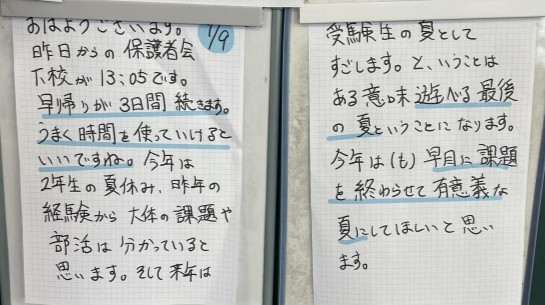 おはようございます。
7/9
昨日からの保護者会
下校が13:05です。
早帰りが3日間続きます。
うまく時間を使っていけると
いいですね。今年は
2年生の夏休み、昨年の
経験から大体の課題や
部活は分かっていると
思います。そして来年は
受験生の夏として
すごします。と、いうことは
ある意味遊べる最後
の夏ということになります。
今年は(も)早目に課題
を終わらせて有意義な
夏にしてほしいと思い
ます。